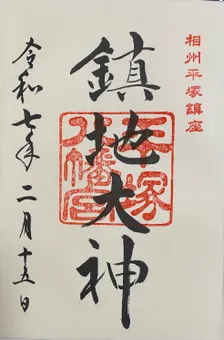 相州平塚鎮座
鎮地大神
平塚八幡宮
令和七年二月十五日